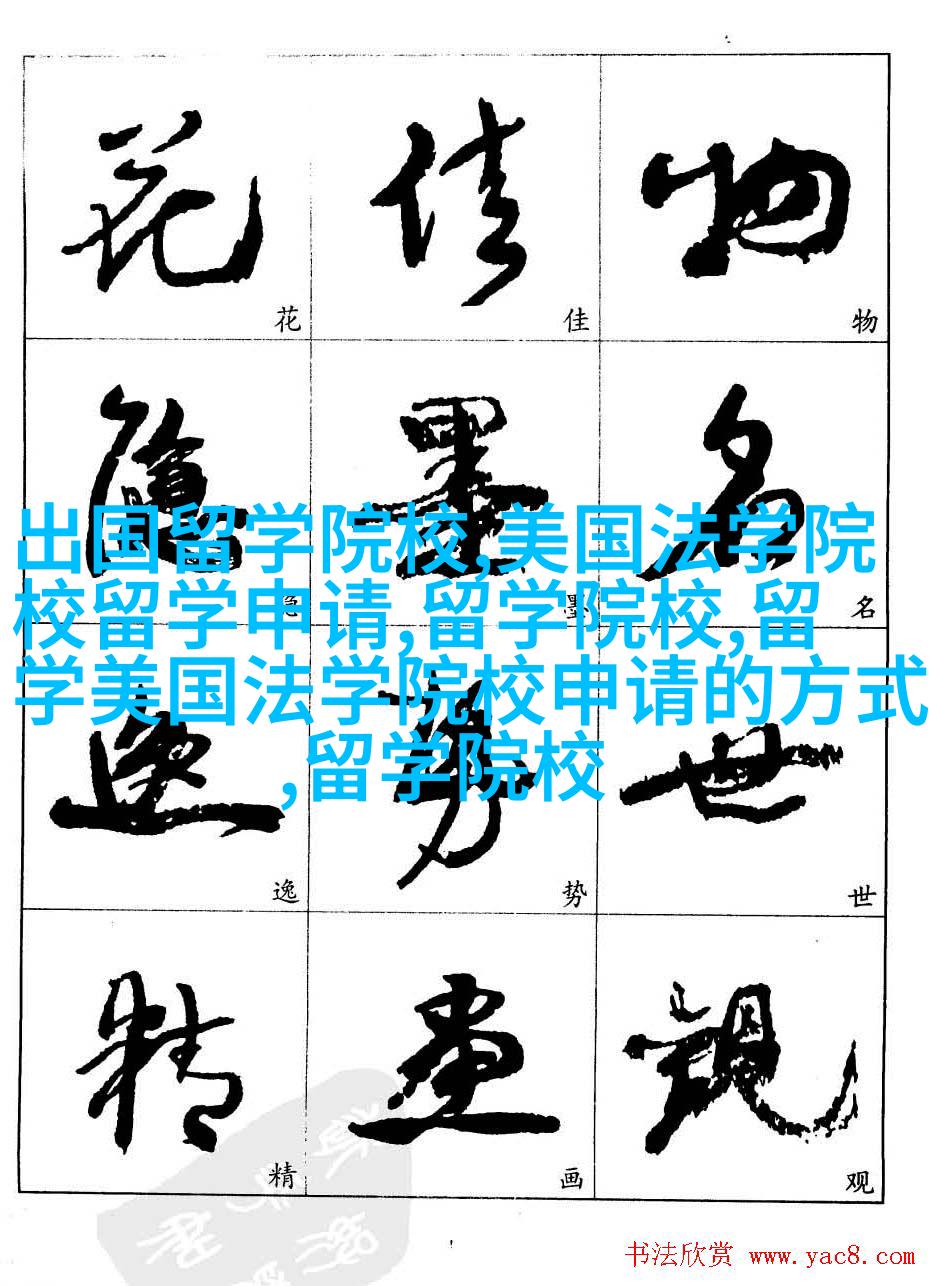 花 佳 物
花 佳 物
隐 墨 名
出国留学院校,美国法学院
校留学申请,留学院校,留
墨 名
学美国法学院校申请的方式
逸 势 世
,留学院校
逸 势 世
精 画 观
精 画 观
书法欣赏 www.yac8.com